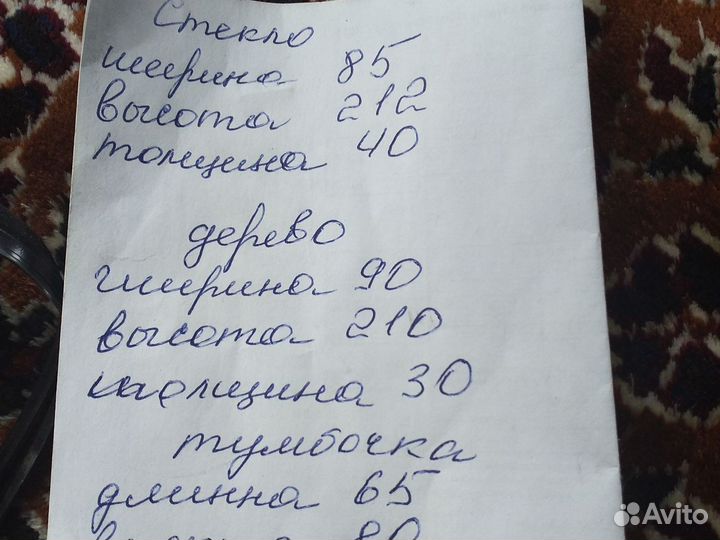 Стекло
ширина 85
высота 212
толщина 40
дерево
ширина 90
высота 210
толщина 30
тумбочка
длинна 65
80
Avito